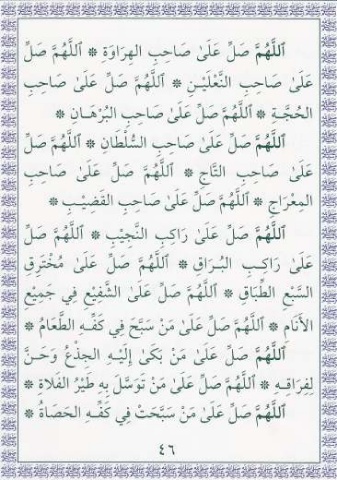 اَللَّهُمَّ صَلِّ عَلَىٰ صَاحِبِ الهِرَاوَةِ ۞ اَللَّهُمَّ صَلِّ
عَلَىٰ صَاحِبِ النَّعْلَيْنِ ۞ اَللَّهُمَّ صَلِّ عَلَىٰ صَاحِبِ
الحُجَّةِ ۞ اَللَّهُمَّ صَلِّ عَلَىٰ صَاحِبِ البُرْهَانِ ۞
اَللَّهُمَّ صَلِّ عَلَىٰ صَاحِبِ السُّلْطَانِ ۞ اَللَّهُمَّ صَلِّ
عَلَىٰ صَاحِبِ التَّاجِ ۞ اَللَّهُمَّ صَلِّ عَلَىٰ صَاحِبِ
المِعْرَاجِ ۞ اَللَّهُمَّ صَلِّ عَلَىٰ صَاحِبِ القَضِيْبِ ۞
اَللَّهُمَّ صَلِّ عَلَىٰ رَاكِبِ النَّجِيْبِ ۞ اَللَّهُمَّ صَلِّ
عَلَىٰ رَاكِبِ البُرَاقِ ۞ اَللَّهُمَّ صَلِّ عَلَىٰ مُخْتَرِقِ
السَّبْعِ الطِّبَاقِ ۞ اَللَّهُمَّ صَلِّ عَلَىٰ الشَّفِيْعِ فِي جَمِيْعِ
الأَنَامِ ۞ اَللَّهُمَّ صَلِّ عَلَىٰ مَنْ سَبَّحَ فِي كَفِّهِ الطَّعَامُ ۞
اَللَّهُمَّ صَلِّ عَلَىٰ مَنْ بَكَىٰ إِلَيْهِ الجِذْعُ وَحَنَّ
لِفِرَاقِهِ ۞ اَللَّهُمَّ صَلِّ عَلَىٰ مَنْ تَوَسَّلَ بِهِ طَيْرُ الفَلَاةِ ۞
اَللَّهُمَّ صَلِّ عَلَىٰ مَنْ سَبَّحَتْ فِي كَفِّهِ الحَصَاةُ ۞
٤٦